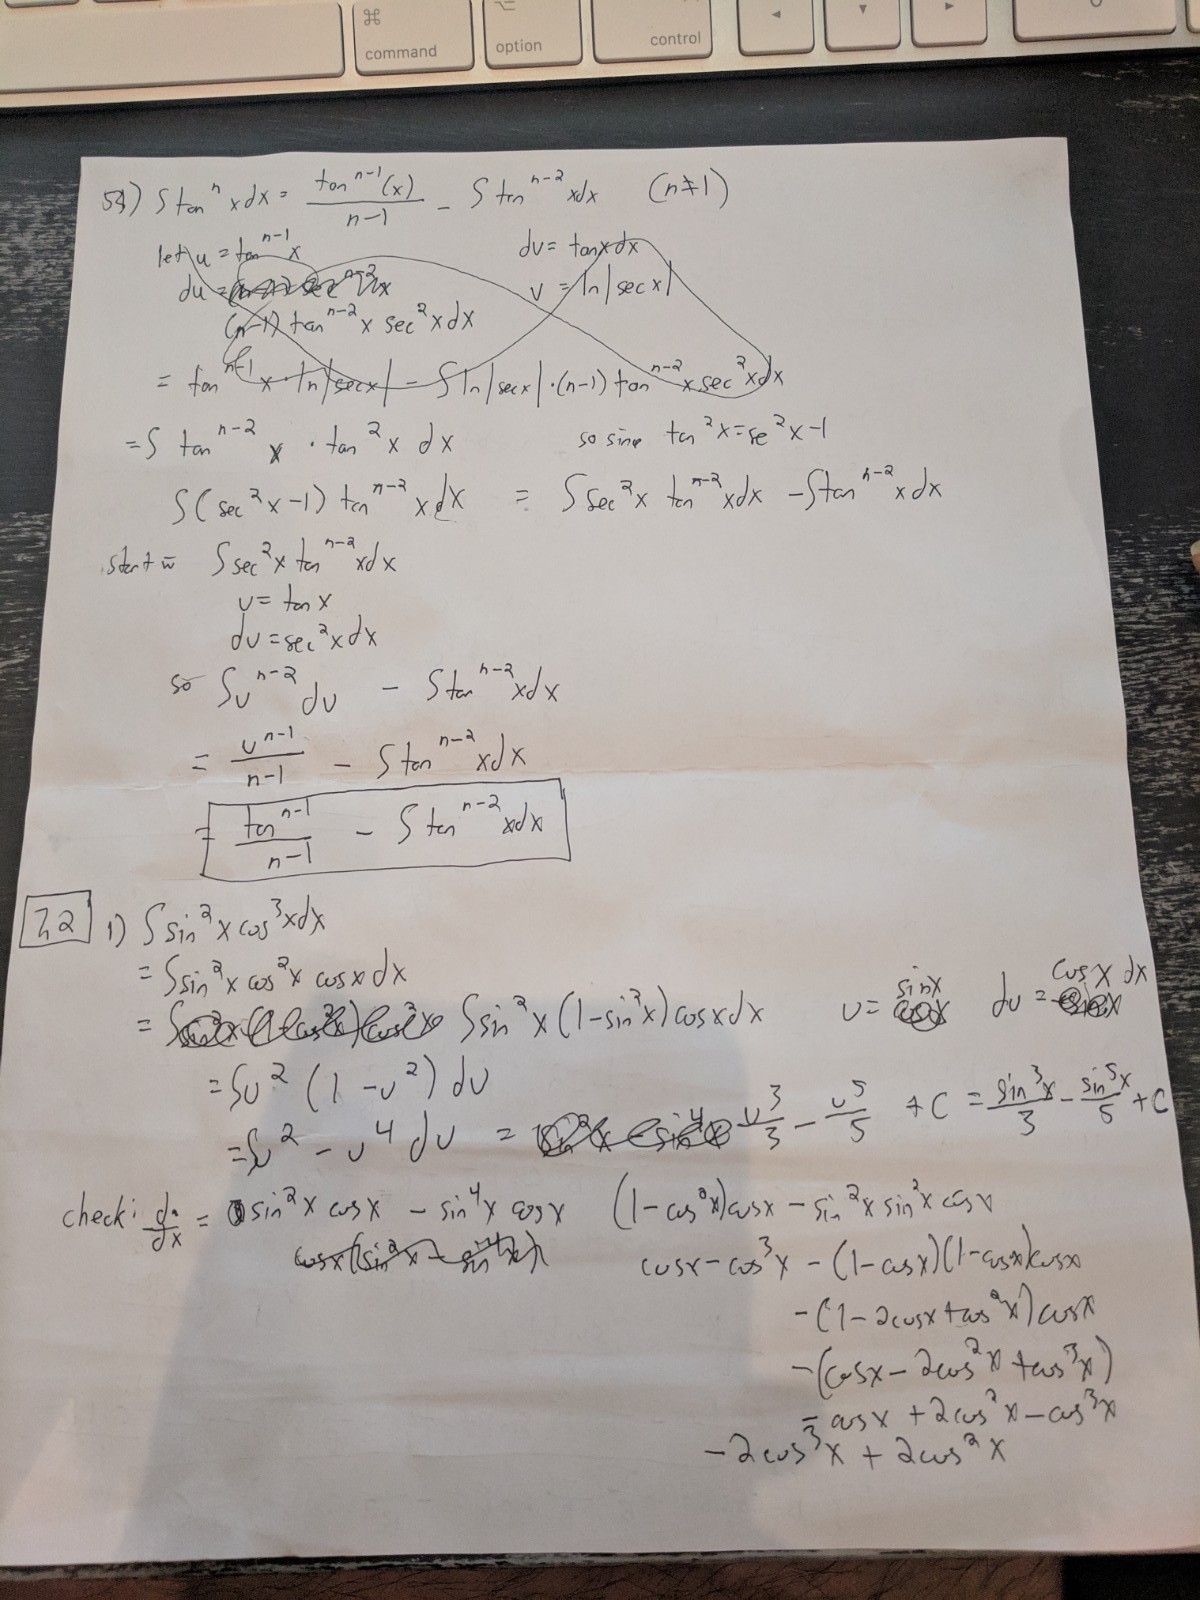 ⌘
command
⌥
option
control
◄
▼
►
0
54) ∫tanⁿ x dx = tanⁿ⁻¹(x)/n-1 - ∫tanⁿ⁻² x dx (n≠1)
let u = tanⁿ⁻¹ x dv = tan x dx
du = v = ln|sec x|
(n-1) tanⁿ⁻² x sec² x dx
= tanⁿ⁻¹ x · ln|sec x| - ∫ln|sec x| · (n-1) tanⁿ⁻² x sec² x dx
= ∫ tanⁿ⁻² x · tan² x dx so tan² x = se² x - 1
∫(sec² x - 1) tanⁿ⁻² x dx = ∫sec² x tanⁿ⁻² x dx - ∫tanⁿ⁻² x dx
start w̄ ∫sec² x tanⁿ⁻² x dx
u = tan x
du = sec² x dx
so ∫uⁿ⁻² du - ∫tanⁿ⁻² x dx
= uⁿ⁻¹/n-1 - ∫tanⁿ⁻² x dx
= tanⁿ⁻¹/n-1 - ∫tanⁿ⁻² x dx
7.2 1) ∫sin² x cos³ x dx
= ∫sin² x cos² x cos x dx
= ∫sin² x (1-sin² x) cos x dx u = sin x du = cos x dx
= ∫u² (1-u²) du
= ∫u² - u⁴ du = u³/3 - u⁵/5 + C = sin³x/3 - sin⁵x/5 + C
check: d/dx = sin² x cos x - sin⁴ x cos x (1-cos² x)cos x - sin² x sin² x cos x
cos x (sin² x - sin⁴ x) cos x - cos³ x - (1-cos x)(1-cos x)cos x
-(1-2cos x + cos² x) cos x
-(cos x - 2cos² x + cos³ x)
-cos x + 2cos² x - cos³ x
-2cos³ x + 2cos² x